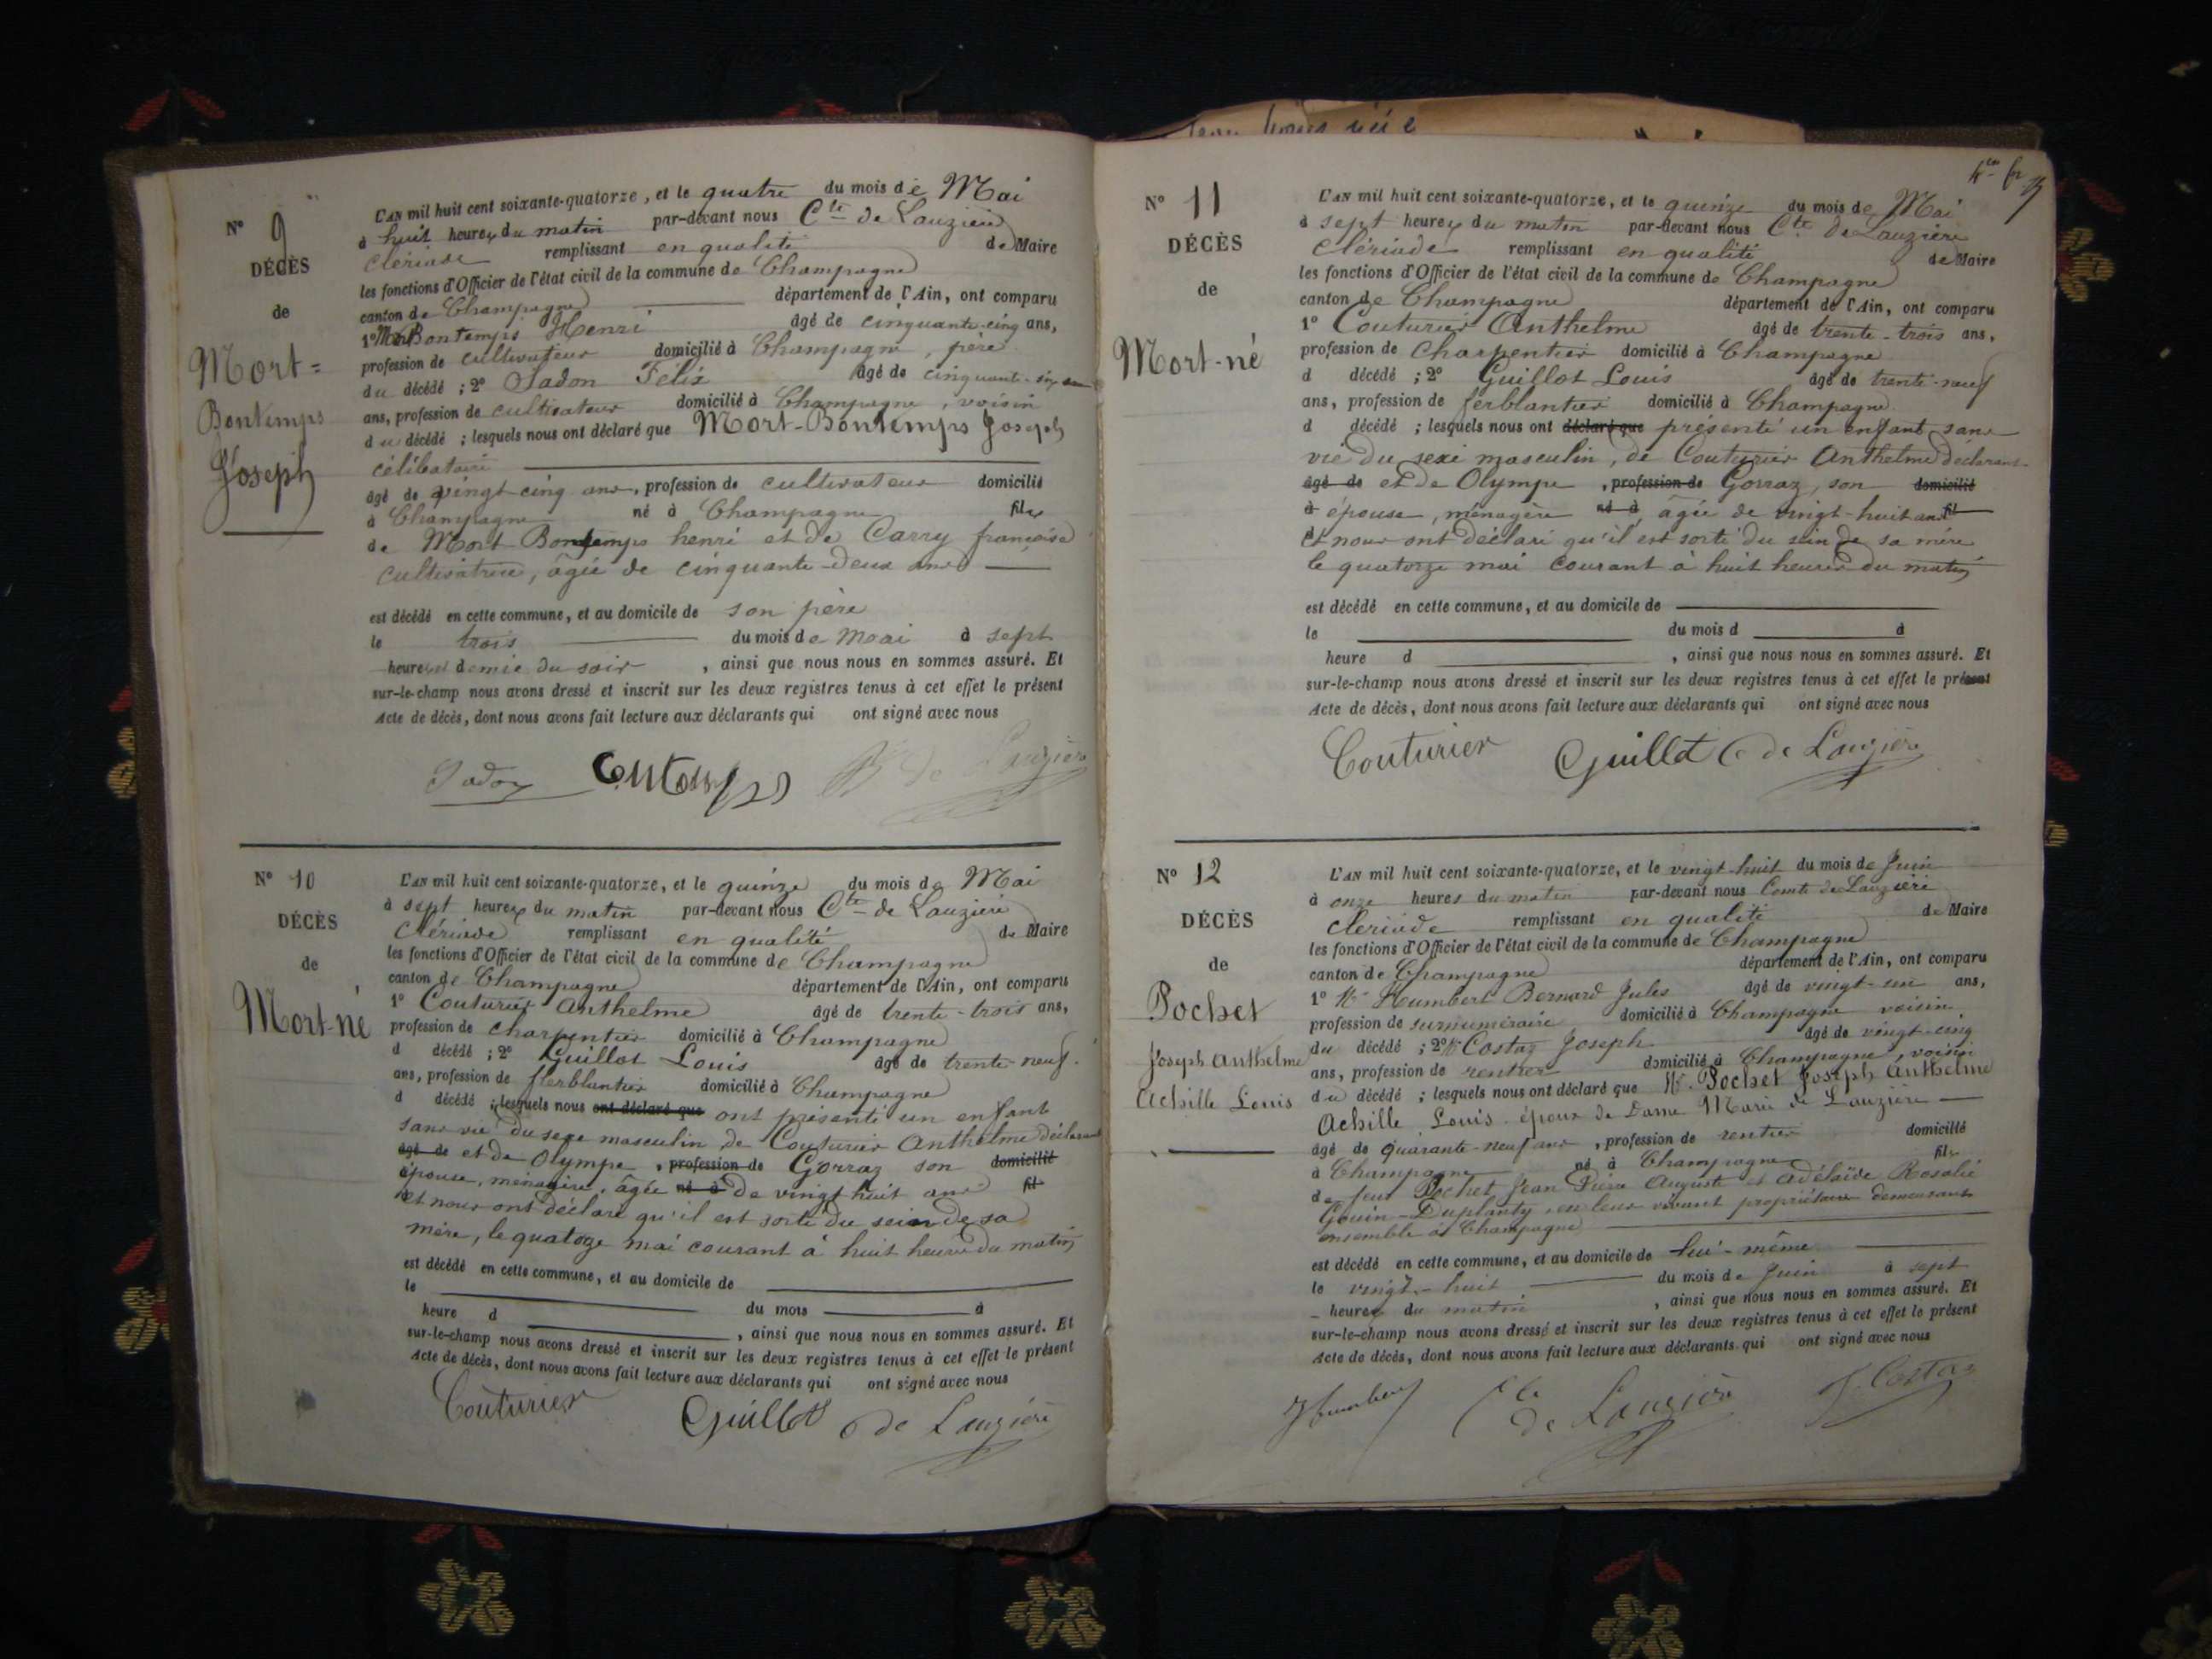 N° 9
DÉCÈS
de
Mort=
Bontemps
Joseph
L'AN mil huit cent soixante-quatorze, et le quatre du mois de Mai
à huit heures du matin par-devant nous Cte de Lauzière
Clériade remplissant en qualité de Maire
les fonctions d'Officier de l'état civil de la commune de Champagne
canton de Champagne département de l'Ain, ont comparu
1° Mort Bontemps Henri âgé de cinquante-cinq ans,
profession de cultivateur domicilié à Champagne, père
du décédé ; 2° Jadon Félix âgé de cinquante-six ans
ans, profession de cultivateur domicilié à Champagne, voisin
du décédé ; lesquels nous ont déclaré que Mort-Bontemps Joseph
célibataire
âgé de vingt-cinq ans, profession de cultivateur domicilié
à Champagne né à Champagne fils
de Mort Bontemps henri et de Carry françoise
cultivatrice, âgée de cinquante-deux ans
est décédé en cette commune, et au domicile de son père
le trois du mois de Mai à sept
heures et demie du soir, ainsi que nous nous en sommes assuré. Et
sur-le-champ nous avons dressé et inscrit sur les deux registres tenus à cet effet le présent
Acte de décès, dont nous avons fait lecture aux déclarants qui ont signé avec nous
Jadon de Lauzière
N° 10
DÉCÈS
de
Mort-né
L'AN mil huit cent soixante-quatorze, et le quinze du mois de Mai
à sept heures du matin par-devant nous Cte de Lauzière
Clériade remplissant en qualité de Maire
les fonctions d'Officier de l'état civil de la commune de Champagne
canton de Champagne département de l'Ain, ont comparu
1° Couturier Anthelme âgé de trente-trois ans,
profession de charpentier domicilié à Champagne
d décédé ; 2° Guillot Louis âgé de trente-neuf
ans, profession de ferblantier domicilié à Champagne
d décédé ; lesquels nous ont déclaré que ont présenté un enfant
sans vie du sexe masculin de Couturier Anthelme déclarant
âgé de et de Olympe, profession de Gorraz son domicilié
épouse, ménagère, âgée né à de vingt huit ans fil
et nous ont déclaré qu'il est sorti du sein de sa
mère, le quatorze mai courant à huit heures du matin
est décédé en cette commune, et au domicile de
le du mois à
heure d , ainsi que nous nous en sommes assuré. Et
sur-le-champ nous avons dressé et inscrit sur les deux registres tenus à cet effet le présent
Acte de décès, dont nous avons fait lecture aux déclarants qui ont signé avec nous
Couturier Guillot de Lauzière
N° 11
DÉCÈS
de
Mort-né
L'AN mil huit cent soixante-quatorze, et le quinze du mois de Mai
à sept heures du matin par-devant nous Cte de Lauzière
Clériade remplissant en qualité de Maire
les fonctions d'Officier de l'état civil de la commune de Champagne
canton de Champagne département de l'Ain, ont comparu
1° Couturier Anthelme âgé de trente-trois ans,
profession de Charpentier domicilié à Champagne
d décédé ; 2° Guillot Louis âgé de trente-neuf
ans, profession de ferblantier domicilié à Champagne
d décédé ; lesquels nous ont déclaré que présenté un enfant sans
vie du sexe masculin, de Couturier Anthelme déclarant
âgé de et de Olympe, profession de Gorraz, son domicilié
à épouse, ménagère né à âgée de vingt-huit ans fil
et nous ont déclaré qu'il est sorti du sein de sa mère
le quatorze mai courant à huit heures du matin
est décédé en cette commune, et au domicile de
le du mois d à
heure d , ainsi que nous nous en sommes assuré. Et
sur-le-champ nous avons dressé et inscrit sur les deux registres tenus à cet effet le présent
Acte de décès, dont nous avons fait lecture aux déclarants qui ont signé avec nous
Couturier Guillot de Lauzière
N° 12
DÉCÈS
de
Pochet
Joseph Anthelme
Achille Louis
L'AN mil huit cent soixante-quatorze, et le vingt-huit du mois de Juin
à onze heures du matin par-devant nous Comte de Lauzière
Clériade remplissant en qualité de Maire
les fonctions d'Officier de l'état civil de la commune de Champagne
canton de Champagne département de l'Ain, ont comparu
1° Mr Humbert Bernard Jules âgé de vingt-un ans,
profession de surnuméraire domicilié à Champagne voisin
du décédé ; 2° Mr Costaz Joseph âgé de vingt-cinq
ans, profession de rentier domicilié à Champagne, voisin
du décédé ; lesquels nous ont déclaré que Mr. Pochet Joseph Anthelme
Achille Louis époux de Dame Marie de Lauzière
âgé de quarante-neuf ans, profession de rentier domicilié
à Champagne né à Champagne fils
de feu Pochet Jean Pierre Auguste et Adélaïde Rosalie
Gouin-Duplanty, en leur vivant propriétaires demeurant
ensemble à Champagne
est décédé en cette commune, et au domicile de lui-même
le vingt-huit du mois de Juin à sept
heures du matin, ainsi que nous nous en sommes assuré. Et
sur-le-champ nous avons dressé et inscrit sur les deux registres tenus à cet effet le présent
Acte de décès, dont nous avons fait lecture aux déclarants qui ont signé avec nous
JHumbert Cte de Lauzière J. Costaz